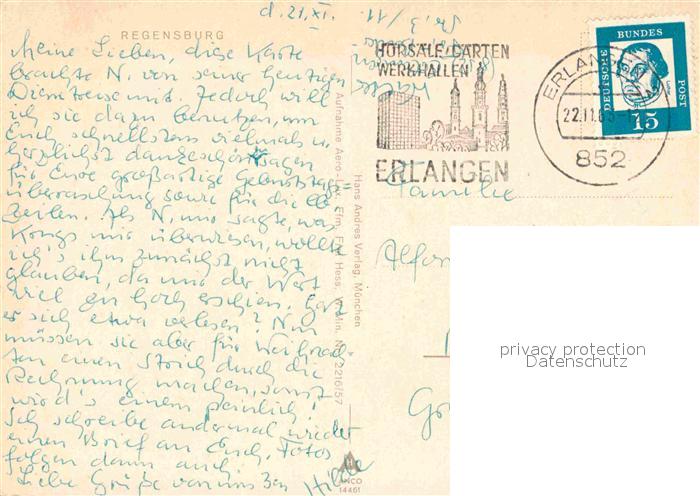 d. 21.XI.
REGENSBURG
Meine Lieben, diese Karte
brachte N. von seiner heutigen
Dienstreise mit. Jedoch will
ich sie dazu benutzen, um
Euch schnellstens vielmals u.
herzlichst dankeschön sagen
für Eure großartige Geburtstags-
überraschung sowie für die lb.
Zeilen. Als N. mir sagte, was
Ihr mir überwiesen, wollte
ich's ihm zunächst nicht
glauben, da mir der Wert
viel zu hoch erschien. Hat
er sich etwa verlesen? Nun
müssen sie aber für Weihnach-
ten einen Strich durch die
Rechnung machen, sonst
wird's einem peinlich!
Ich schreibe andermal wieder
einen Brief an Euch. Fotos
folgen dann auch.
Liebe Grüße von uns 3en
Hilde
Hans Andres Verlag, München
HÖRSÄLE/GÄRTEN
WERKHALLEN
ERLANGEN
ERLANGEN
22.11.63
852
DEUTSCHE
BUNDES
POST
15
Familie
ANCO
14461
privacy protection
Datenschutz